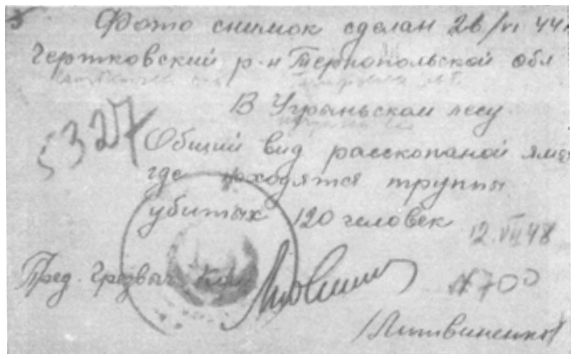 Фото снимок сделан 26/VI 44
Чертковский р-н Тернопольской обл
В Угриньском лесу
5327
Общий вид расскопаной ямы
где находятся труппы
убитых 120 человек
12.VII 48
Пред. Чрезвыч. Ком
№700
/Литвиненко/